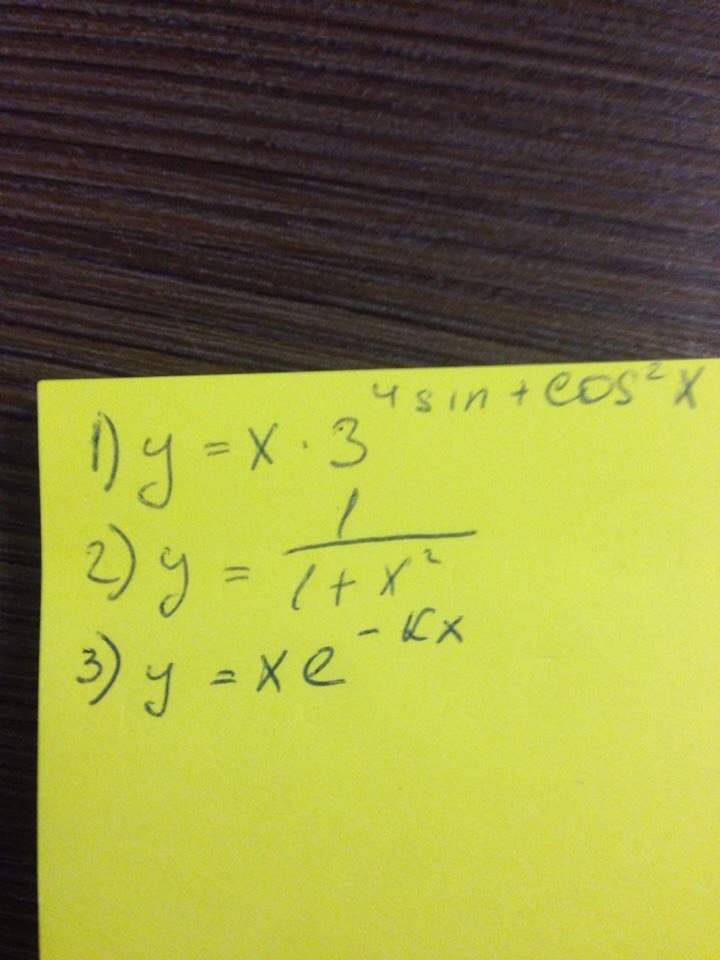 1) y = x · 3^{4 sin + cos² x}
2) y = \frac{1}{1 + x²}
3) y = x e^{-kx}